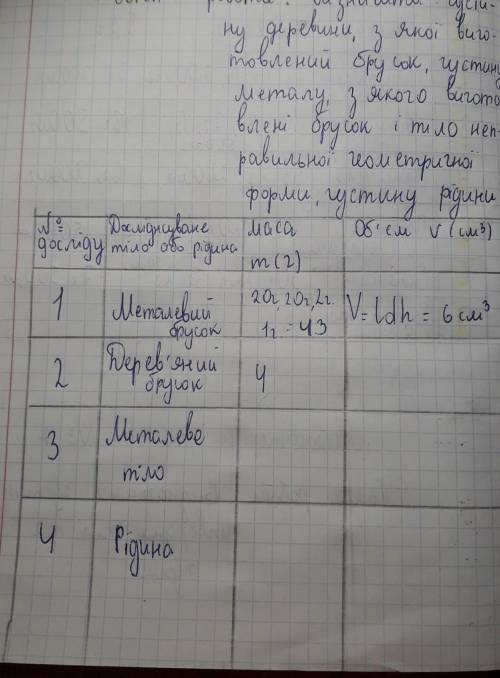 робота: визначити густи-
ну деревини, з якої виго-
товлений брусок, густину
металу, з якого вигото
влені брусок і тіло неп-
равильної геометричної
форми, густину рідини
№ досліду
Досліджуване тіло або рідина
маса m (г)
Об'єм V (см³)
1
Металевий брусок
20г, 20г, 2г
1г = 43
V = ldh = 6 см³
2
Дерев'яний брусок
4
3
Металеве тіло
4
Рідина